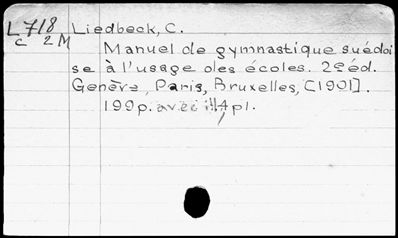 L718 Liedbeck, C.
c 2M
Manuel de gymnastique suédoi
se à l'usage des écoles. 2e éd.
Genève, Paris, Bruxelles, [1901].
199p. avec ill, 4pl.